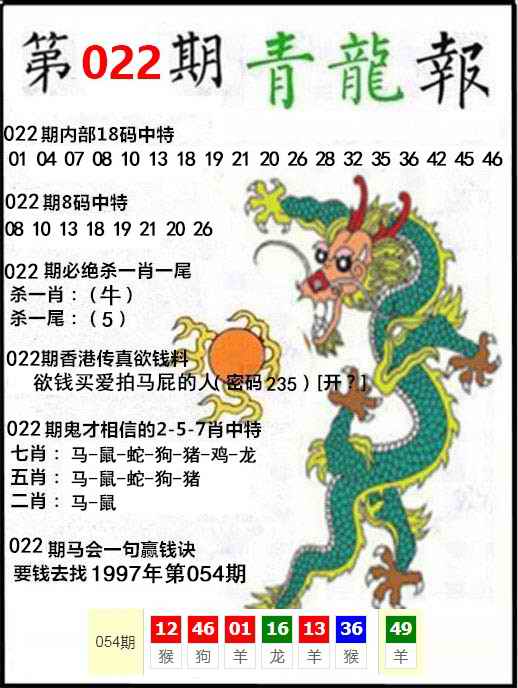 第022期青龍報
022期内部18码中特
01 04 07 08 10 13 18 19 21 20 26 28 32 35 36 42 45 46
022期8码中特
08 10 13 18 19 21 20 26
022期必绝杀一肖一尾
杀一肖：（牛）
杀一尾：（5）
022期香港传真欲钱料
欲钱买爱拍马屁的人（密码235）[开？]
022期鬼才相信的2-5-7肖中特
七肖：马-鼠-蛇-狗-猪-鸡-龙
五肖：马-鼠-蛇-狗-猪
二肖：马-鼠
022期马会一句赢钱诀
要钱去找1997年第054期
054期 12 46 01 16 13 36 49
猴 狗 羊 龙 羊 猴 羊